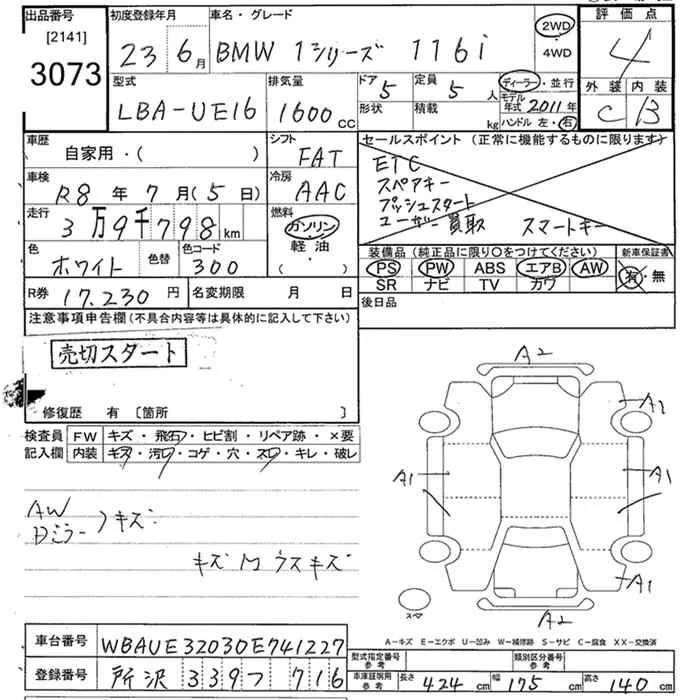 出品番号 初度登録年月 車名・グレード 2WD ・ 4WD 評価点
[2141]
3073 23 6月 BMW 1シリーズ 116i 4
型式 排気量 ドア 定員 ディーラー・並行 外装 内装
LBA-UE16 1600cc 5 5人 モデル年式 2011年 C B
形状 積載 kg ハンドル 左・右
車歴 シフト セールスポイント (正常に機能するものに限ります)
自家用・( ) FAT ETC
車検 冷房 スペアキー
R8年 7月(5日) AAC プッシュスタート
走行 燃料 ユーザー買取 スマートキー
3万9千798km ガソリン
色 色替 色コード 軽油 装備品 (純正品に限り○をつけてください) 新車保証書
ホワイト 300 ・( ) PS PW ABS エアB AW 有・無
SR ナビ TV カワ
R券 17.230円 名変期限 月 日 後日品
注意事項申告欄(不具合内容等は具体的に記入して下さい)
売切スタート
修復歴 有 〔箇所 〕
検査員 FW キズ・飛石・ヒビ割・リペア跡・×要
記入欄 内装 キズ・汚レ・コゲ・穴・スレ・キレ・破レ
AW
Dミラー)キズ
キズM ウスキズ
A2
A2
A1 A1
A1
A2
スペア
A-キズ E-エクボ U-凹み W-補修跡 S-サビ C-腐食 XX-交換済
車台番号 WBAUE32030E741227
型式指定番号 参考 類別区分番号 参考
登録番号 所沢 339つ 716
車庫証明用 参考 長さ 424cm 幅 175cm 高さ 140cm